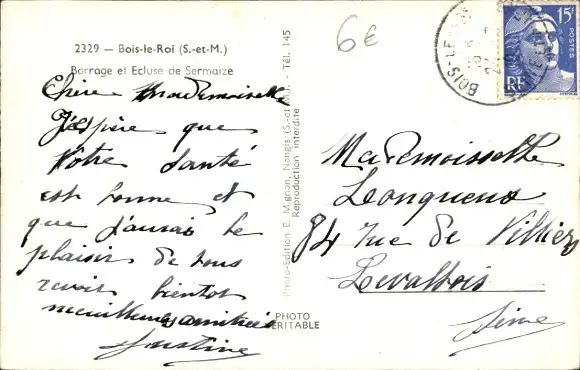 2329 — Bois-le-Roi (S.-et-M.)
Barrage et Ecluse de Sermaize
6€
Chère Mademoiselle
J'éspère que
Vôtre Santé
est bonne et
que j'aurai le
plaisir de vous
revoir bientot
meuilleures amitiées
Faustine
Photo-Edition E. Mignon, Nangis (S.-et-M.) - Tél. 145
Reproduction interdite
PHOTO
VERITABLE
BOIS-LE-
15F
POSTES
RF
Mademoisselle
Leonguens
84 rue de Villiers
Levallois
Seine